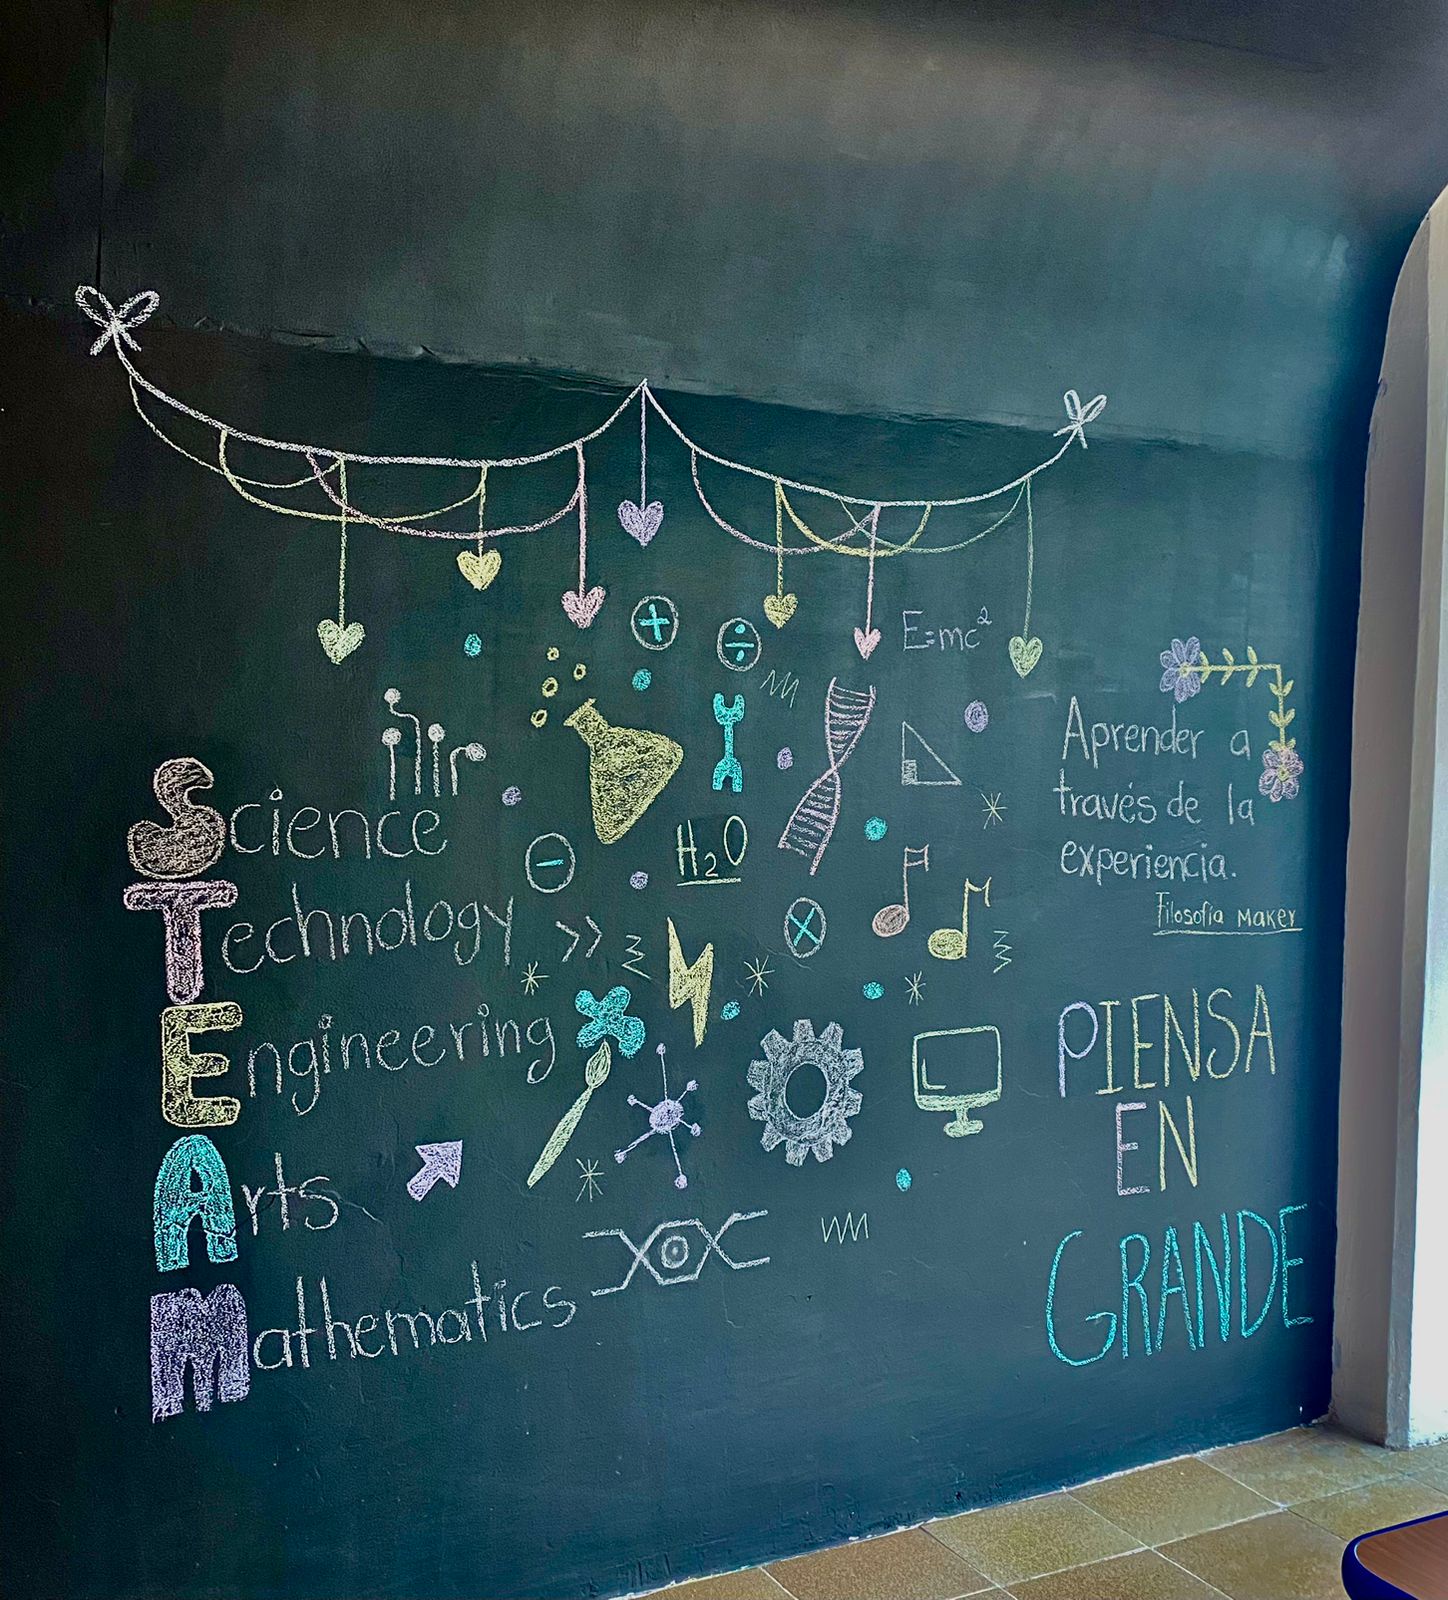 E=mc²
Science
H₂O
Technology
Engineering
Arts
Mathematics
Aprender a
través de la
experiencia.
Filosofía MAKER
PIENSA
EN
GRANDE